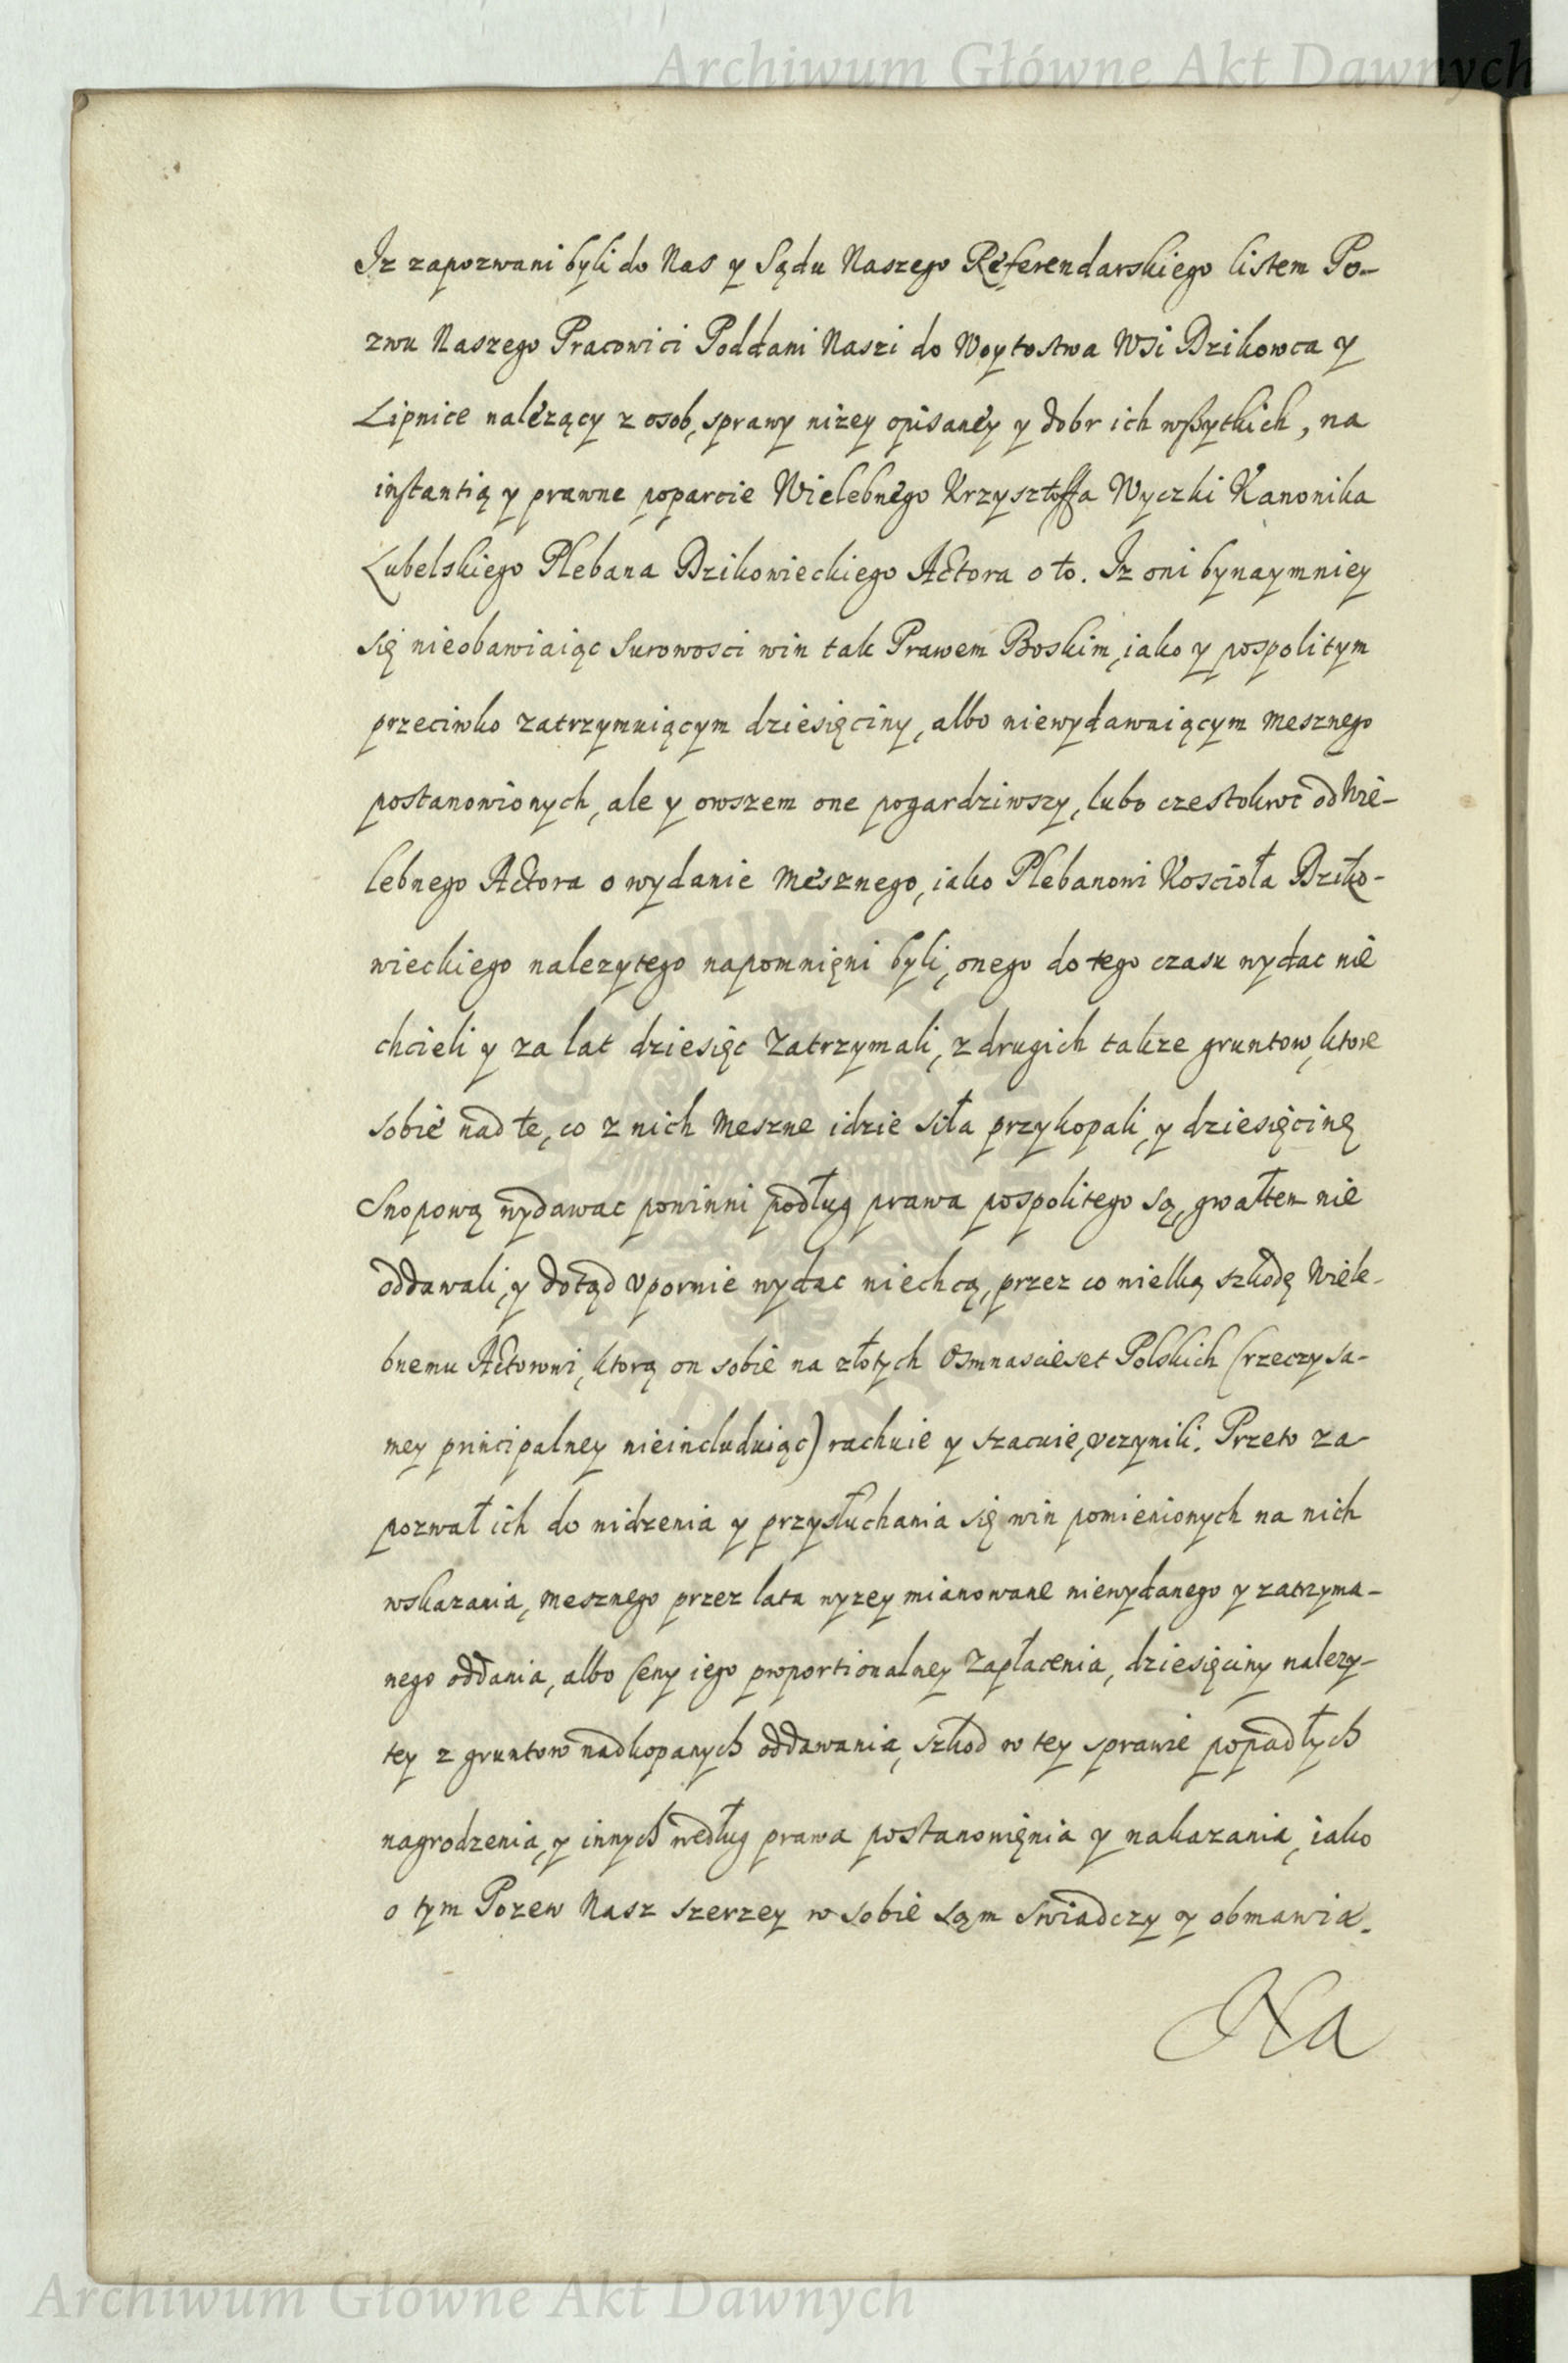 Archiwum Główne Akt Dawnych
Iz zapozwani byli do Nas y Sądu Naszego Referendarskiego listem Po-
zwu Naszego Pracowici Poddani Naszi do Woytostwa Wsi Dzikowca y
Lipnice nalezący z osob, sprawy nizey opisaney y dobr ich wßytkich, na
instantią y prawne poparcie Wielebnego Krzysztoffa Wyczki Kanonika
Lubelskiego Plebana Dzikowieckiego Actora o to. Iz oni bynaymniey
się nieobawiaiąc surowosci win tak Prawem Boskim, iako y pospolitym
przeciwko zatrzymuiącym dziesięciny, albo niewydawaiącym mesznego
postanowionych, ale y owszem one pogardziwszy, lubo czestokroc od Wie-
lebnego Actora o wydanie mesznego, iako Plebanowi Koscioła Dziko-
wieckiego nalezytego napomnięni byli, onego do tego czasu wydac nie
chcieli y za lat dziesięc zatrzymali, z drugich takze gruntow, ktore
sobie nad te, co z nich meszne idzie siła przykopali, y dziesięcinę
Snopową wydawac powinni podług prawa pospolitego są, gwałtem nie
oddawali, y dotąd upornie wydac niechcą, przez co wielką szkodę Wiele-
bnemu Actorowi, ktorą on sobie na złotych Osmnascieset Polskich (rzeczy sa-
mey principalney nieincluduiąc) rachuie y szacuie, uczynili. Przeto za-
pozwał ich do widzenia y przysłuchania się win pomienionych na nich
wskazania, mesznego przez lata wyzey mianowane niewydanego y zatrzyma-
nego oddania, albo ceny iego proportionalney zapłacenia, dziesięciny nalezy-
tey z gruntow nadkopanych oddawania, szkod w tey sprawie popadłych
nagrodzenia, y innych według prawa postanowięnia y nakazania, iako
o tym Pozew Nasz szerzey w sobie sąm swiadczy y obmawia.
Na
Archiwum Główne Akt Dawnych